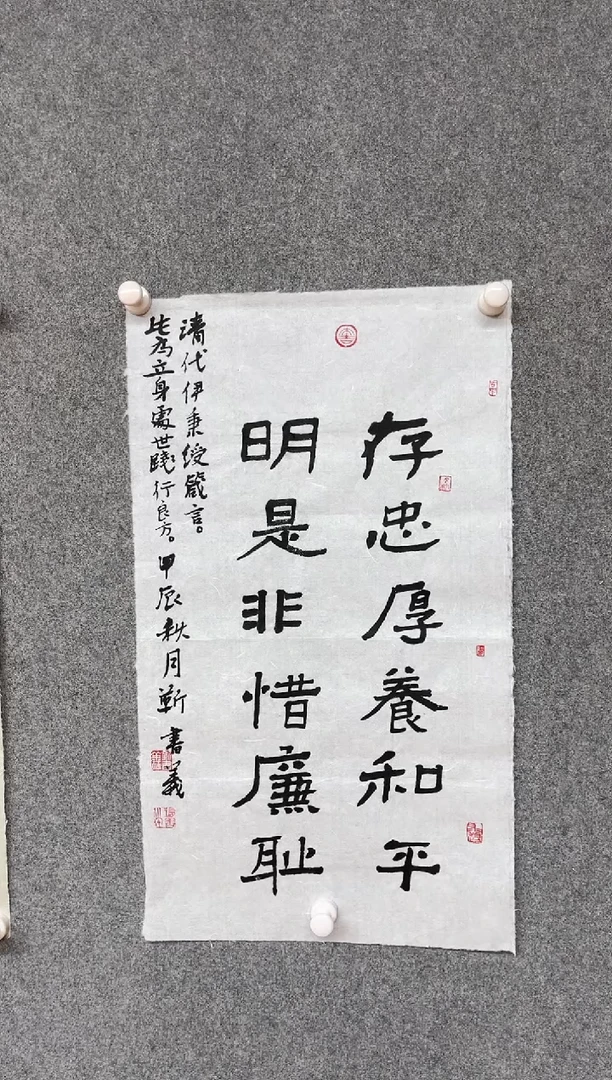 存忠厚養和平
明是非惜廉耻
清代伊秉绶箴言。
此为立身處世踐行良方。甲辰秋月靳書義